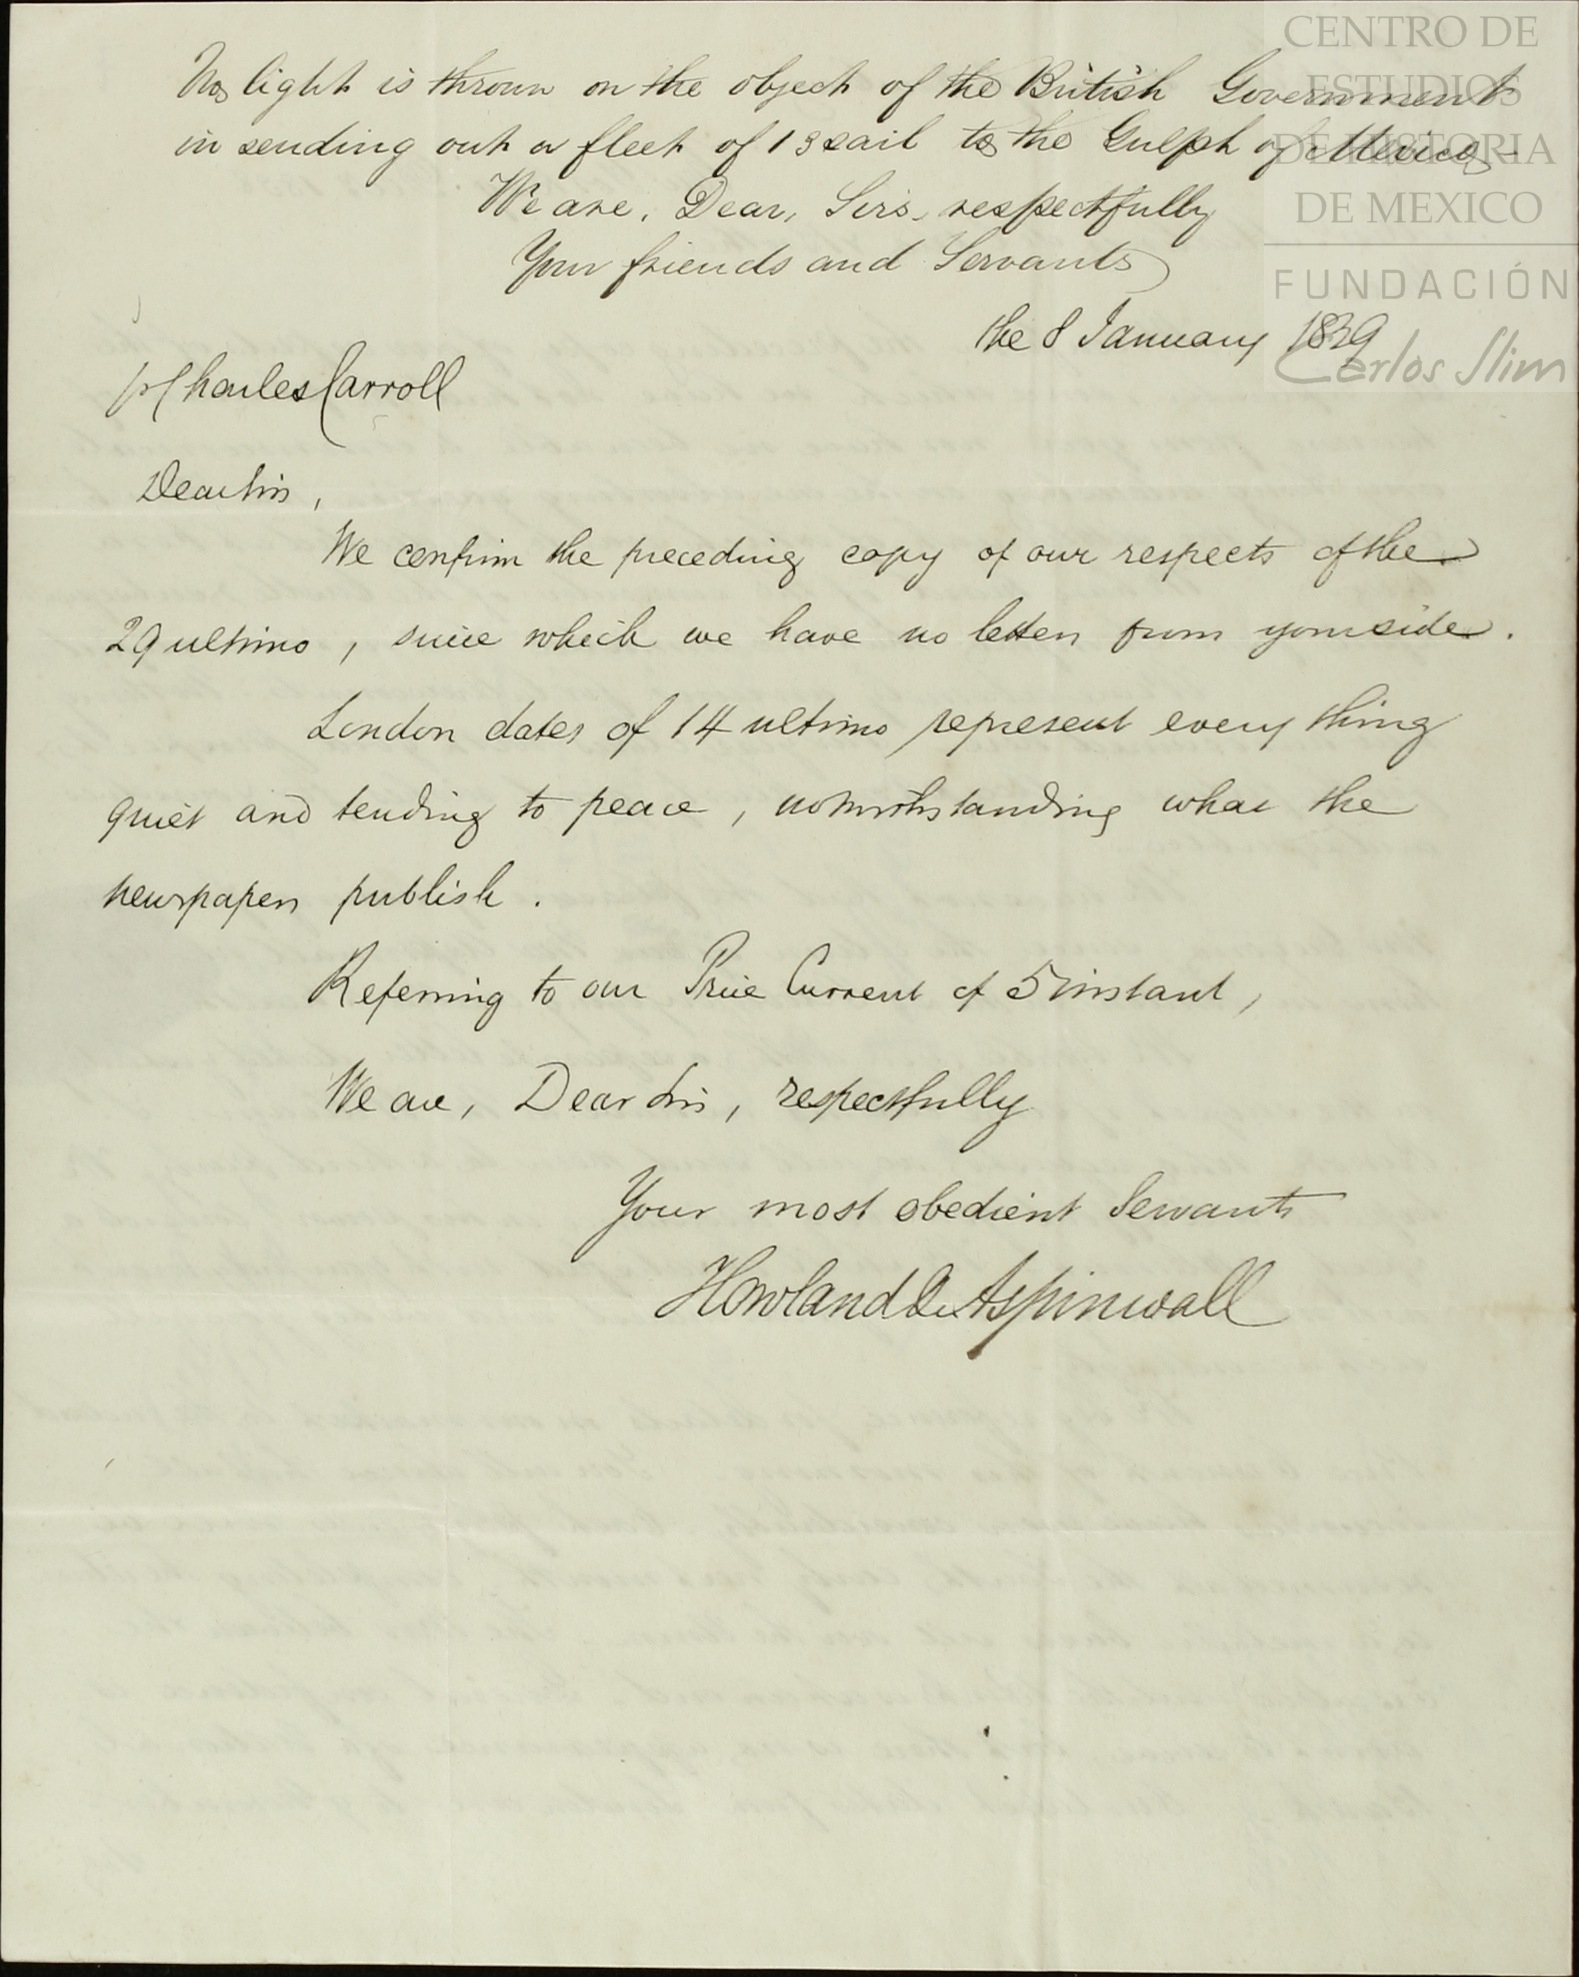 No light is thrown on the object of the British Government
in sending out a fleet of 13 sail to the Gulph of Mexico –
We are, Dear, Sirs, respectfully
Your friends and Servants
the 8 January 1839
pr Charles Carroll
Dear Sirs,
We confirm the preceding copy of our respects of the
29 ultimo, since which we have no letters from your side.
London dates of 14 ultimo represent every thing
quiet and tending to peace, notwithstanding what the
newspapers publish.
Referring to our Price Current of 5 instant,
We are, Dear Sirs, respectfully
Your most obedient Servants
Howland & Aspinwall
CENTRO DE
ESTUDIOS
DE HISTORIA
DE MEXICO
FUNDACIÓN
Carlos Slim